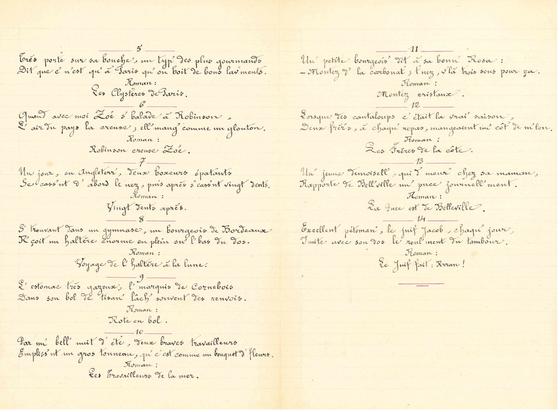 5
Très porté sur sa bouche, un typ' des plus gourmands
Dit que c' n'est qu'à Paris qu'on boit de bons lav'ments.
Roman :
Les Clystères de Paris.
6
Quand avec moi Zoé s' balade à Robinson,
L'air du pays la creuse, ell' mang' comme un glouton.
Roman :
Robinson creuse Zoé.
7
Un jour, en Angleterr', deux boxeurs épatants
Se cass'nt d'abord le nez, puis après s' cass'nt vingt dents.
Roman :
Vingt dents après.
8
S' trouvant dans un gymnase, un bourgeois de Bordeaux
R'çoit un haltère énorme en plein su' l' bas du dos.
Roman :
Voyage de l'haltère à la lune.
9
L'estomac très gazeux, l' marquis de Cornebois
Dans son bol de tisan' lâch' souvent des renvois.
Roman :
Rote en bol.
10
Par un' bell' nuit d'été, deux braves travailleurs
Empliss'nt un gros tonneau, qu' c'est comme un bouquet d' fleurs.
Roman :
Les Travailleurs de la mer.
11
Un' petite bourgeois' dit à sa bonn' Rosa :
— Montez d' la carbonat', l' nez, v'là trois sous pour ça.
Roman :
Montez cristaux.
12
Lorsque des cantaloups c'était la vrai' saison,
Deux frèr's, à chaqu' repas, mangeaient un' côt' de m'lon.
Roman :
Les Frères de la côte.
13
Un' jeune demoisell' qui d'meur' chez sa maman,
Rapporte de Bell'ville un' puce journell'ment.
Roman :
La puce est de Belleville.
14
Excellent pétoman', le juif Jacob, chaqu' jour,
Imite avec son dos le roul'ment du tambour.
Roman :
Le Juif fait : Rrran !